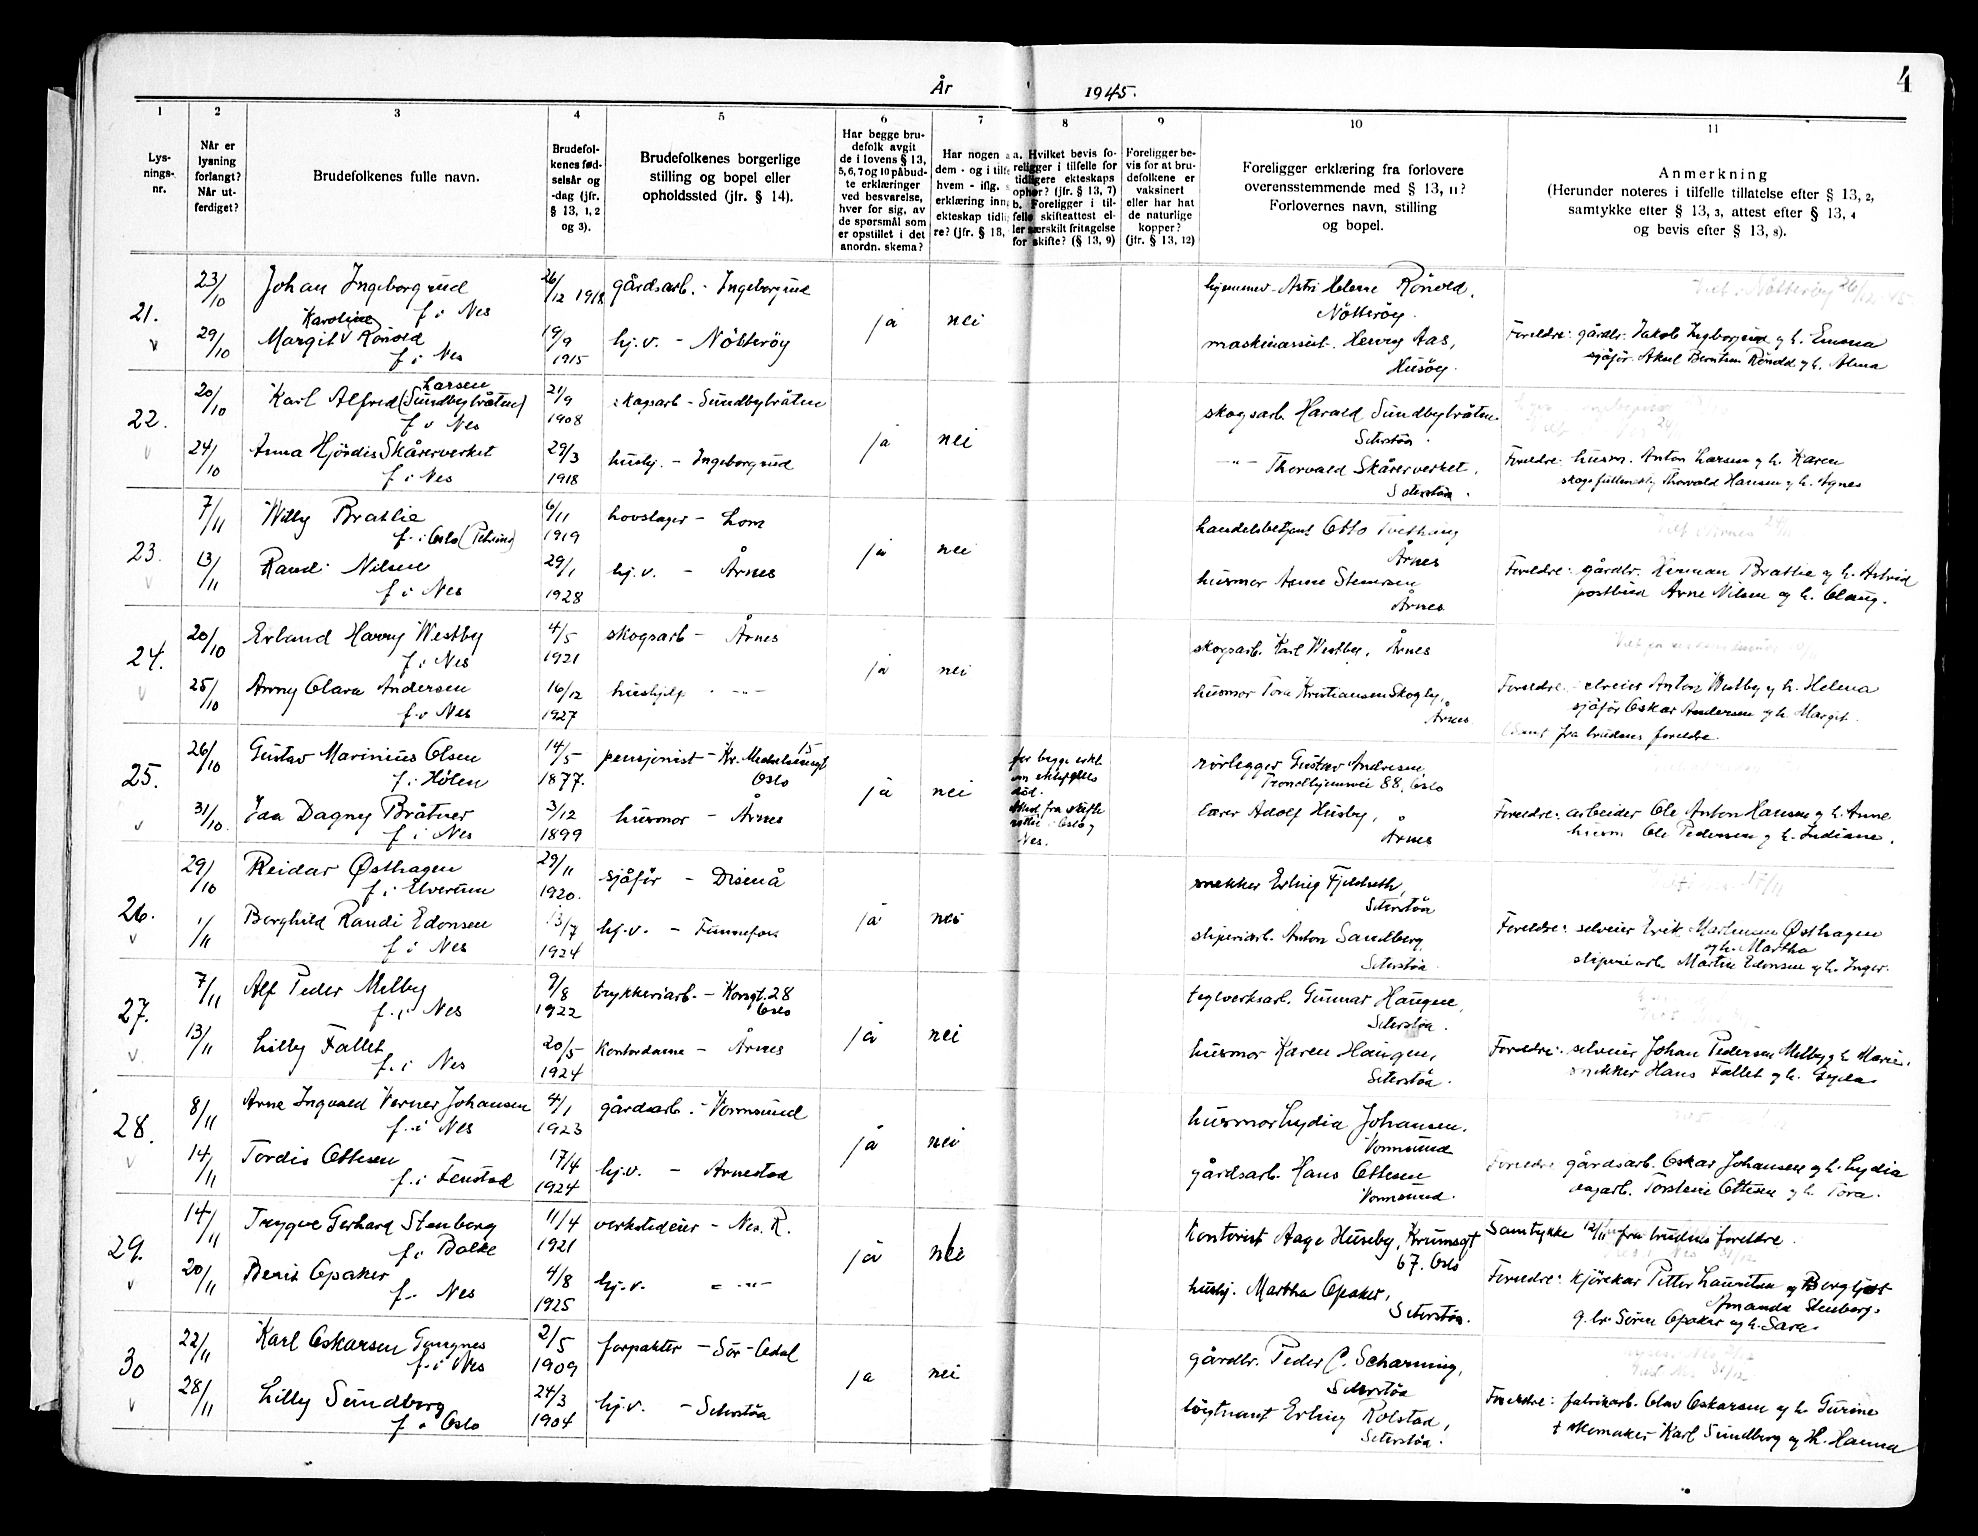 År 1945.
4
1 2 3 4 5 6 7 8 9 10 11
Lys-
nings-
nr.
Når er
lysning
forlangt?
Når ut-
ferdiget?
Brudefolkenes fulle navn.
Brudefol-
kenes fød-
selsår og
-dag (jfr.
§ 13, 1, 2
og 3).
Brudefolkenes borgerlige
stilling og bopel eller
opholdssted (jfr. § 14).
Har begge bru-
defolk avgit
de i lovens § 13,
5, 6, 7 og 10 påbud-
te erklæringer
ved besvarelse,
hver for sig, av
de spørsmål som
er opstillet i det
anordn. skema?
Har nogen a
dem - og i tilfe
hvem - iflg. s
erklæring inn
ekteskap tidli
re? (jfr. § 13,
a. Hvilket bevis fo-
religger i tilfelle for
tidligere ekteskaps
ophør? (jfr. § 13, 7)
b. Foreligger i til-
felle skifteattest el-
ler særskilt fritagelse
for skifte? (§ 13, 9)
Foreligger be-
vis for at bru-
defolkene er
vaksinert
eller har hat
de naturlige
kopper?
(jfr. § 13, 12)
Foreligger erklæring fra forlovere
overensstemmende med § 13, 11?
Forlovernes navn, stilling
og bopel.
Anmerkning
(Herunder noteres i tilfelle tillatelse efter § 13, 2,
samtykke efter § 13, 3, attest efter § 13, 4
og bevis efter § 13, 8).
21.
23/10 Johan Ingeborgrud 26/12 1918 gårdsarb. - Ingeborgrud
f. i Nes
ja nei
Astri Helene Rönold,
Nötteröy.
Nötteröy 26/12 45
Karoline
29/10 Margit v Rönold 19/9 1915 hj.v. - Nötteröy
f. i Nes
maskinassist. Henry Aas,
Husöy.
Foreldre: gårdbr. Jakob Ingeborgrud og h. Emma
sjåför Aksel Berntsen Rönold og h. Alma
22.
20/10 Karl Alfred Larsen (Sundbybråten) 21/9 1908 skogsarb - Sundbybråten
f. i Nes
ja nei
skogsarb. Harald Sundbybråten
Seterstöa.
24/10 Anna Hjördis Skårerverket 29/3 1918 hushj. - Ingeborgrud
f. i Nes
-"- Thorvald Skårerverket,
Seterstöa.
Foreldre: husm. Anton Larsen og h. Karen
Thorvald Hansen og h. Agnes
23.
7/11 Willy Bratlie 6/11 1919 hovslager - Lom
f. i Oslo
ja nei
handelsbetjent Otto
Årnes
13/11 Randi Nilsen 29/1 1928 hj.v. - Årnes
f. i Nes
husmor Arne Stensrun
Årnes
Foreldre: gårdbr. Herman Bratlie og h. Astrid
postbud Arne Nilsen og h. Olaug.
24.
20/10 Erland Harry Westby 4/5 1921 skogsarb - Årnes
f. i Nes
ja nei
skogsarb. Karl Westby, Årnes
25/10 Anny Clara Andersen 16/12 1927 hushjelp -"-
f. i Nes
husmor Tora Kristiansen Skogly,
Årnes
Foreldre: Anton Westby og h. Helena
sjåför Oskar Andersen og h. Margit.
fra brudens foreldre.
25.
26/10 Gustav Marinius Olsen 14/5 1877. pensjonist - Kr. 15
f. i Hölen Oslo
ja nei
for begge erkl.
om
död.
fra skifte
Oslo og
Nes.
rörlegger Gustav Andresen
Trondhjemsvei 88, Oslo
31/10. Dagny Bråtner 3/12 1899 husmor - Årnes
f. i Nes
lærer Adolf Husby,
Årnes
Foreldre: arbeider Ole Anton Hansen og h. Anne
husm Ole Pedersen og h. Indiane.
26.
29/10 Reidar Østhagen 29/11 1920. sjåför - Disenå
f. i Elverum
ja nei
snekker Erling Fjeldseth,
Seterstöa
17/11
1/11 Borghild Randi Edonsen 13/7 1924 hj.v. - Funnefoss
f. i Nes
sliperiarb. Anton Sandberg
Seterstöa.
Foreldre: selveier Erik Østhagen
og h. Martha
sliperiarb. Martin Edonsen og h. Inger.
27.
7/11 Alf Peder Melby 9/8 1922 trykkeriarb. - Korsgt. 28
f. i Nes Oslo
ja nei
teglverksarb. Gunnar Haugen,
Seterstöa.
13/11 Lilly Fallet 20/5 1924 kontordame - Årnes
f. i Nes
husmor Karen Haugen,
Seterstöa.
Foreldre: selveier Johan Pedersen Melby og h. Marie.
snekker Hans Fallet og h. Gyda
28.
8/11 Arne Ingvald Verner Johansen 4/1 1923 gårdsarb. - Vormsund
f. i Nes
ja nei
husmor Lydia Johansen.
Vormsund
14/11 Tordis Ottesen 17/4 1924 hj.v. - Arnestad
f. i Fenstad
gårdsarb. Hans Ottesen
Vormsund.
Foreldre gårdsarb. Oskar Johansen og h. Lydia
Torstein Ottesen og h. Tora.
29.
14/11 Trygve Gerhard Stenberg 11/4 1921 verkstedeier - Nes. R.
f. i Balke
ja nei
kontorist Aage Huseby, Krumsgt
67. Oslo
Samtykke 12/11 fra brudens foreldre.
20/11 Berit Opaker 4/8 1925 hj.v. -"-
f. i Nes
hushj. Martha Opaker,
Seterstöa.
Foreldre: kjörekar Petter Lauritsen og Bergljot
Amanda Stenberg.
g.br. Sören Opaker og h. Sara
30
22/11 Karl Oskarsen Gangnes 2/5 1909 forpakter - Sör-Odal
f. i Nes
ja nei
gårdbr. Peder C. Scharning,
Seterstöa
28/11 Lilly Sundberg 24/3 1904 hj.v. - Seterstöa
f. i Oslo
löytnant Erling Rolstad,
Seterstöa.
Foreldre: fabrikarb. Olav Oskarsen og h. Gurine
+ skomaker Karl Sundberg og h. Hanna